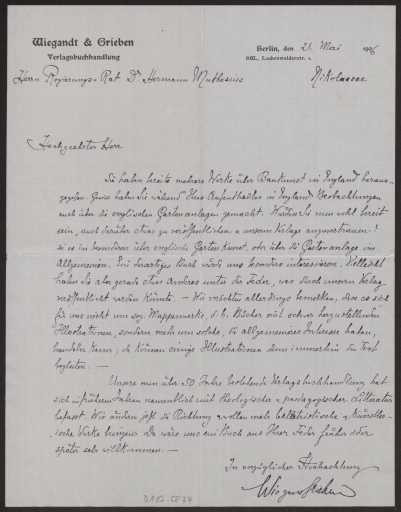 Wiegandt & Grieben
Verlagsbuchhandlung
Berlin, den 21. Mai 1906
SW., Luckenwalderstr. 1.
Herrn Regierungs-Rat Dr Hermann Muthesius
Nikolassee
Hochgeehrter Herr
Sie haben bereits mehrere Werke über Baukunst in England heraus-
gegeben. Gewiss haben Sie während Ihres Aufenthaltes in England Beobachtungen
auch über die englischen Gartenanlagen gemacht. Würden Sie nun nicht bereit
sein, auch darüber etwas zu veröffentlichen u unserem Verlage anzuvertrauen?
sei es im besonderen über englische Gartenkunst, oder über die Gartenanlage im
Allgemeinen. Ein derartiges Buch würde uns besonders interessieren. Vielleicht
haben Sie aber gerade etwas Anderes unter der Feder, was durch unseren Verlag
veröffentlicht werden könnte. — Wir möchten allerdings bemerken, dass es sich
für uns nicht um sog. Mappenwerke, d. h. Bücher mit schwer herzustellenden
Illustrationen, sondern mehr um solche, die allgemeineres Interesse haben,
handeln kann; es können einige Illustrationen dem Text
begleiten. —
Unsere nun über 50 Jahre bestehende Verlagsbuchhandlung hat
sich in früheren Jahren namentlich mit theologischer u. paedagogischer Litteratur
befasst. Wir ändern jetzt die Richtung u wollen mehr belletristische u künstleri-
sche Werke bringen. Da wäre uns ein Buch aus Ihrer Feder früher oder
später sehr willkommen. —
In vorzüglicher Hochachtung
Wiegandt